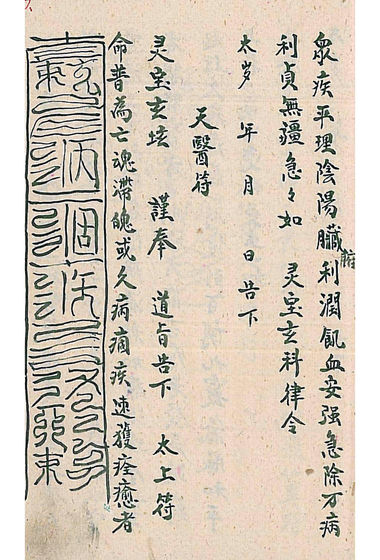 眾疾平理陰陽臟腑利潤飢血安强急除万病
利貞無疆急々如 灵宝玄科律令
太岁 年 月 日告下
天醫符
灵宝玄坛 謹奉 道旨告下 太上符
命普為亡魂滯魄或久病痼疾速獲痊癒者